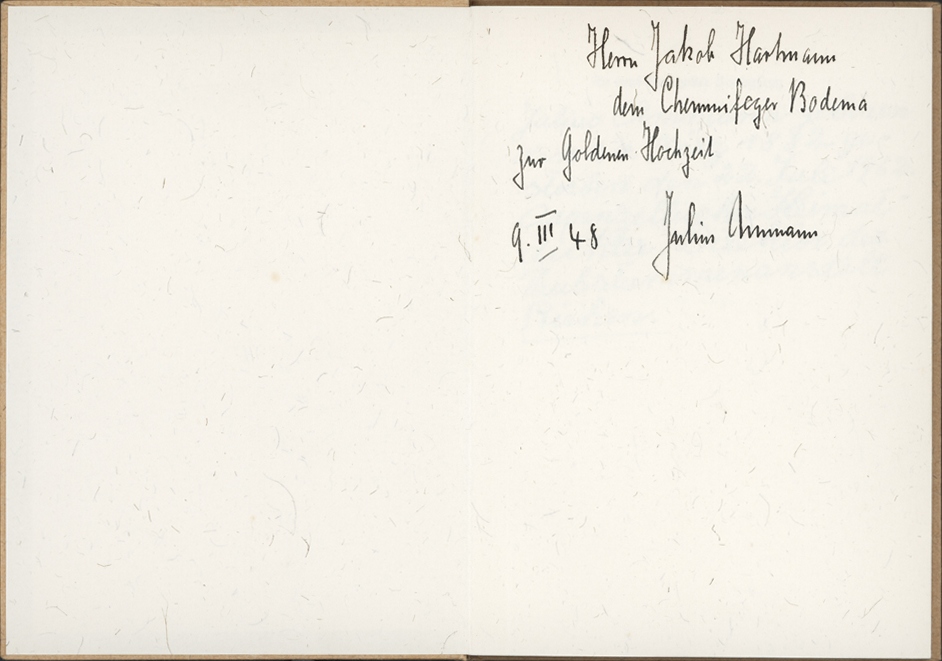 Herrn Jakob Hartmann
dem Chemmifeger Bodema
zur Goldenen Hochzeit
9. III 48 Julius Ammann